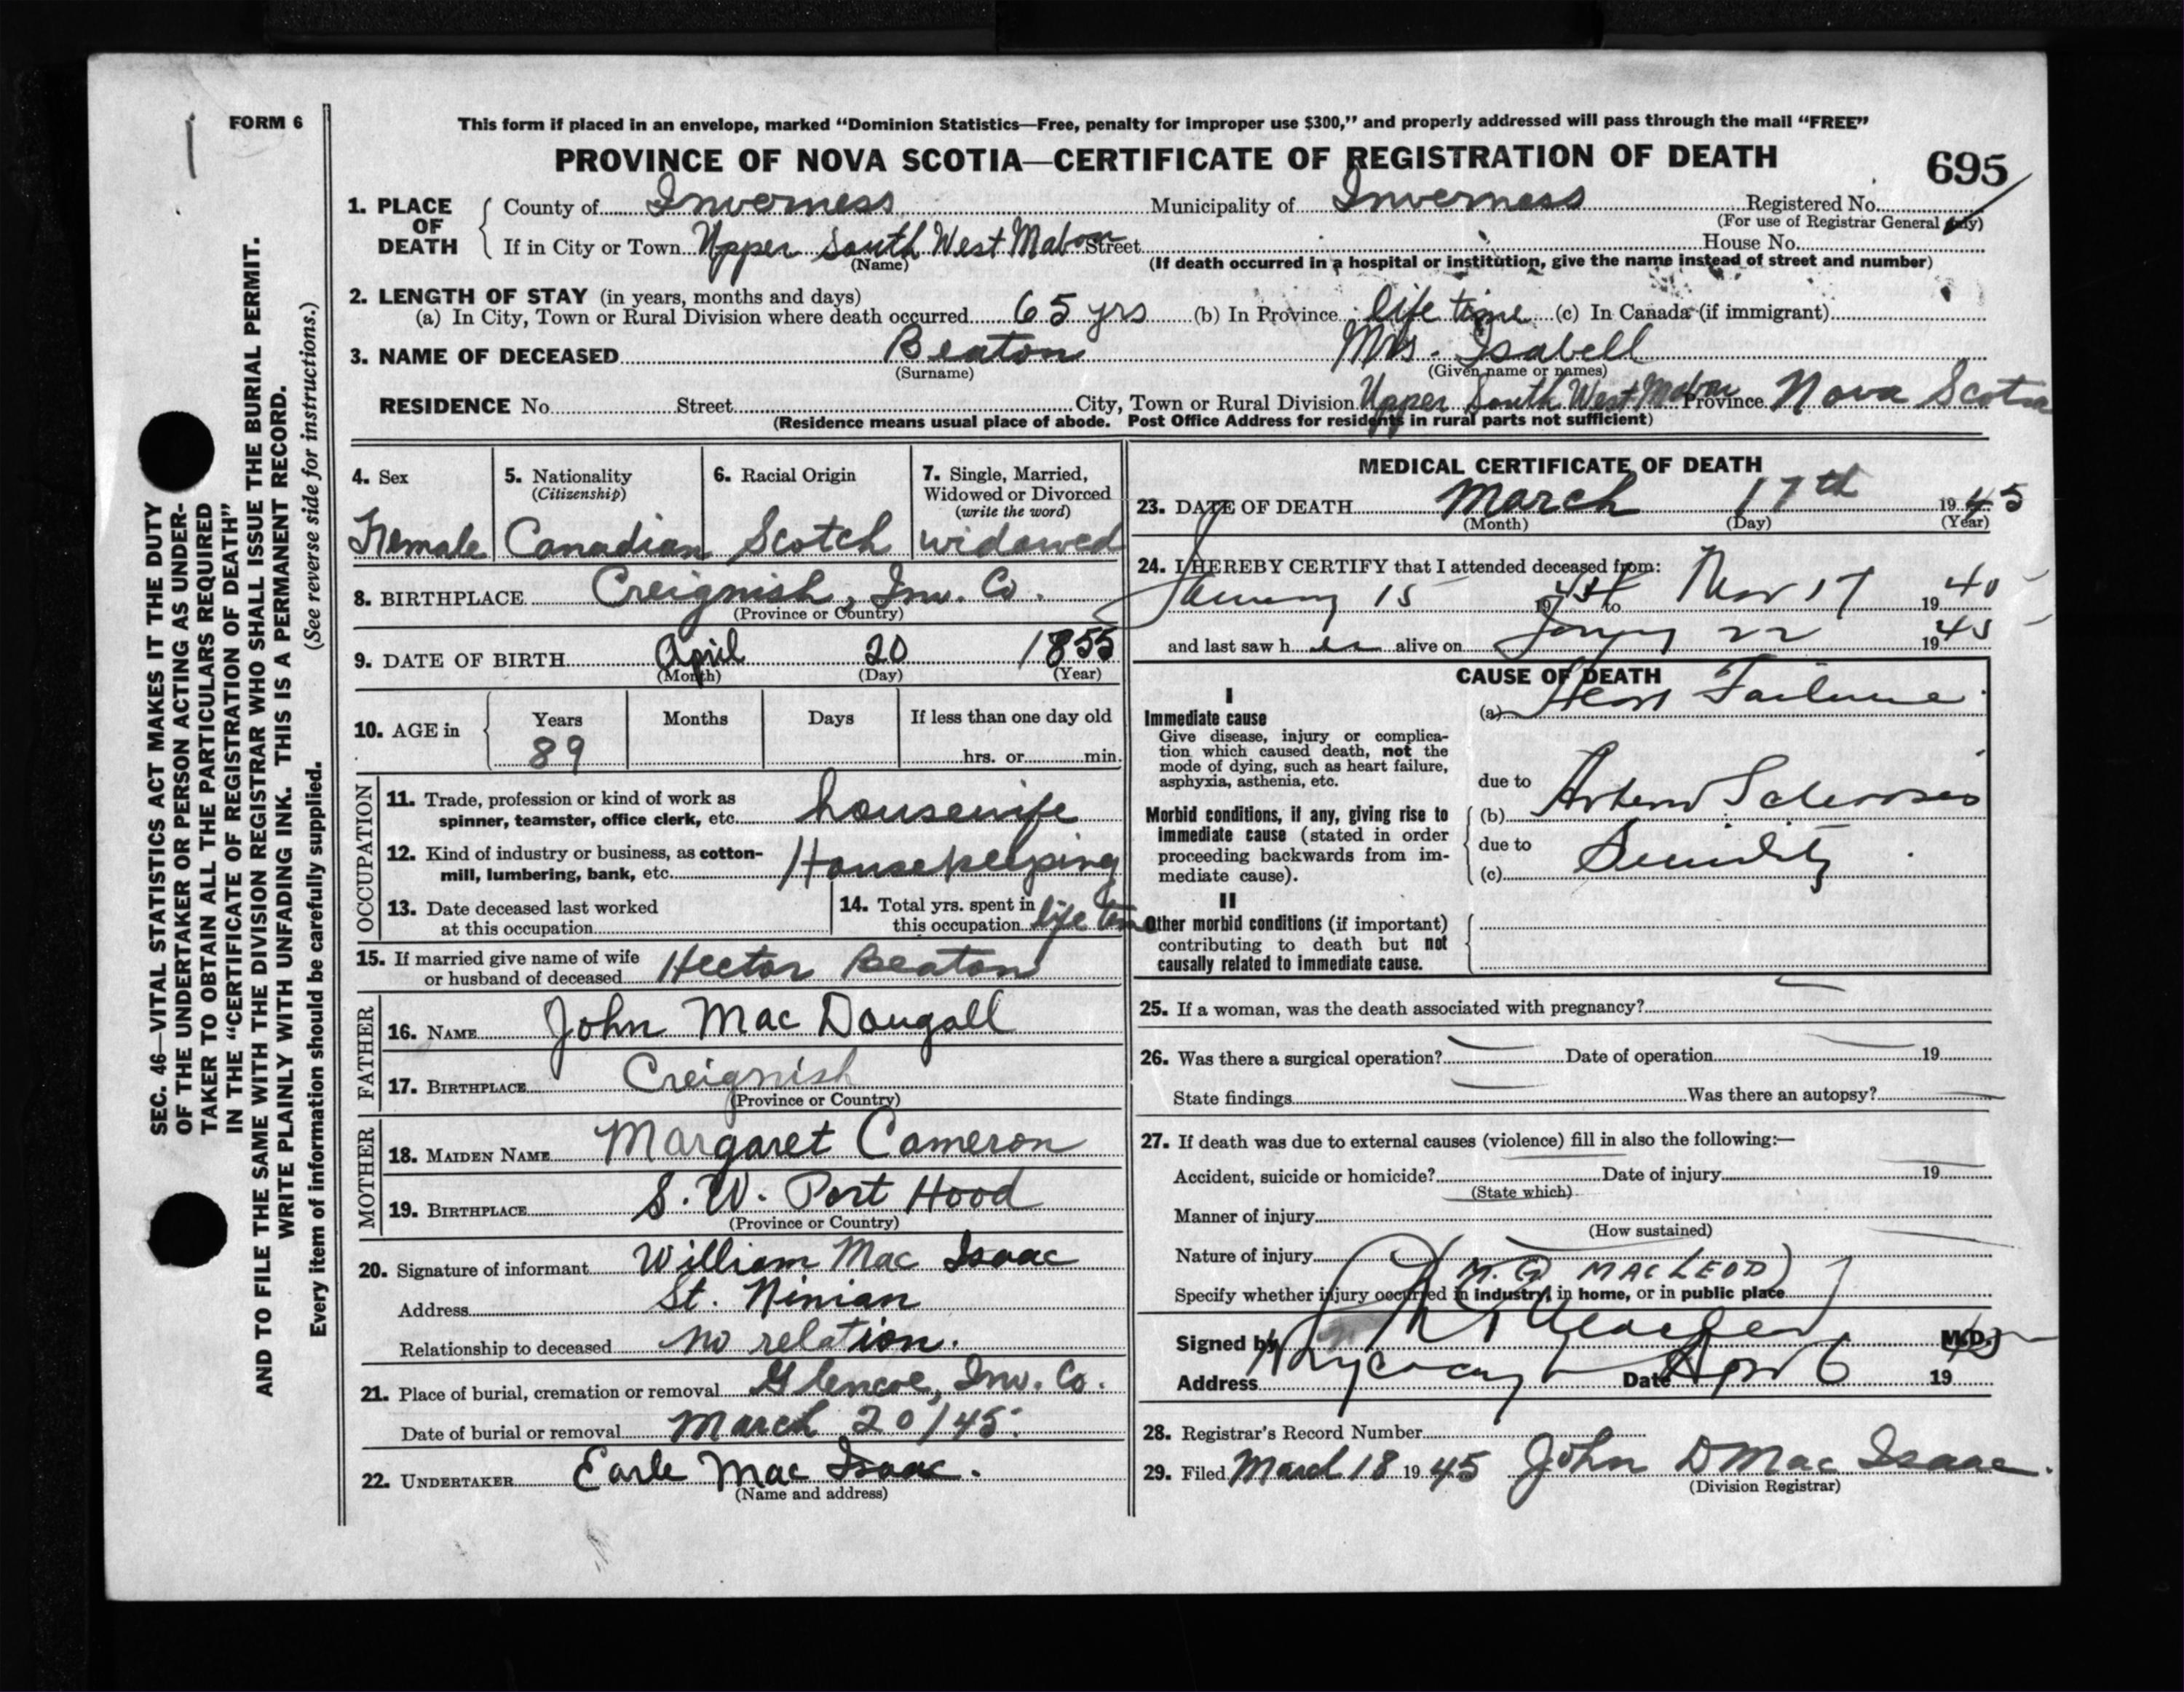 FORM 6
This form if placed in an envelope, marked “Dominion Statistics—Free, penalty for improper use $300,” and properly addressed will pass through the mail “FREE”
PROVINCE OF NOVA SCOTIA—CERTIFICATE OF REGISTRATION OF DEATH
695
1. PLACE OF DEATH
County of Inverness Municipality of Inverness Registered No.
(For use of Registrar General only)
If in City or Town Upper South West Mabou Street House No.
(Name) (If death occurred in a hospital or institution, give the name instead of street and number)
2. LENGTH OF STAY (in years, months and days)
(a) In City, Town or Rural Division where death occurred 65 yrs (b) In Province life time (c) In Canada (if immigrant)
3. NAME OF DECEASED Beaton Mrs. Isabell
(Surname) (Given name or names)
RESIDENCE No. Street City, Town or Rural Division Upper South West Mabou Province Nova Scotia
(Residence means usual place of abode. Post Office Address for residents in rural parts not sufficient)
SEC. 46—VITAL STATISTICS ACT MAKES IT THE DUTY
OF THE UNDERTAKER OR PERSON ACTING AS UNDER-
TAKER TO OBTAIN ALL THE PARTICULARS REQUIRED
IN THE “CERTIFICATE OF REGISTRATION OF DEATH”
AND TO FILE THE SAME WITH THE DIVISION REGISTRAR WHO SHALL ISSUE THE BURIAL PERMIT.
WRITE PLAINLY WITH UNFADING INK. THIS IS A PERMANENT RECORD.
Every item of information should be carefully supplied. (See reverse side for instructions.)
4. Sex
Female
5. Nationality
(Citizenship)
Canadian
6. Racial Origin
Scotch
7. Single, Married,
Widowed or Divorced
(write the word)
widowed
8. BIRTHPLACE Creignish, Inv. Co.
(Province or Country)
9. DATE OF BIRTH April 20 1855
(Month) (Day) (Year)
10. AGE in Years Months Days If less than one day old
89 hrs. or min.
OCCUPATION
11. Trade, profession or kind of work as
spinner, teamster, office clerk, etc. housewife
12. Kind of industry or business, as cotton-
mill, lumbering, bank, etc. Housekeeping
13. Date deceased last worked
at this occupation
14. Total yrs. spent in
this occupation life time
15. If married give name of wife
or husband of deceased Hector Beaton
FATHER
16. NAME John Mac Dougall
17. BIRTHPLACE Creignish
(Province or Country)
MOTHER
18. MAIDEN NAME Margaret Cameron
19. BIRTHPLACE S. W. Port Hood
(Province or Country)
20. Signature of informant William Mac Isaac
Address St. Ninian
Relationship to deceased no relation.
21. Place of burial, cremation or removal Glencoe, Inv. Co.
Date of burial or removal March 20/45.
22. UNDERTAKER Earle Mac Isaac.
(Name and address)
MEDICAL CERTIFICATE OF DEATH
23. DATE OF DEATH March 17th 1945
(Month) (Day) (Year)
24. I HEREBY CERTIFY that I attended deceased from:
January 15 19 to 17 19
and last saw h er alive on 22 1945
CAUSE OF DEATH
I
Immediate cause
Give disease, injury or complica-
tion which caused death, not the
mode of dying, such as heart failure,
asphyxia, asthenia, etc.
(a) Heart Failure
due to
Morbid conditions, if any, giving rise to
immediate cause (stated in order
proceeding backwards from im-
mediate cause).
(b) Arterio Sclerosis
due to
(c) Senility
II
Other morbid conditions (if important)
contributing to death but not
causally related to immediate cause.
25. If a woman, was the death associated with pregnancy?
26. Was there a surgical operation? Date of operation 19
State findings Was there an autopsy?
27. If death was due to external causes (violence) fill in also the following:—
Accident, suicide or homicide? Date of injury 19
(State which)
Manner of injury
(How sustained)
Nature of injury
MACLEOD)
Specify whether injury occurred in industry, in home, or in public place
Signed by M.D.
Address Date Apr 6 19
28. Registrar's Record Number
29. Filed March 18 1945 John D Mac Isaac.
(Division Registrar)